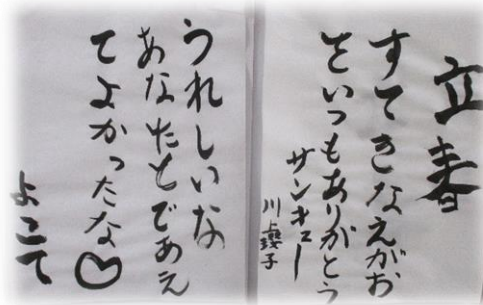 立春
すてきなえがお
といつもありがとう
サンキュー
川上瓔子
うれしいな
あなたとであえ
てよかったな♡
よこて